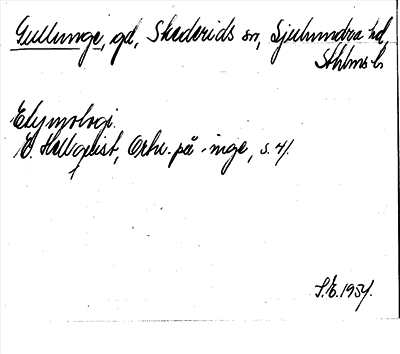 Gullunge, gd, Skederids sn, Sjuhundra hd,
Sthlms l.
Etymologi.
E. Hellquist, Ortn. på -inge, s. 41.
S.E. 1954.